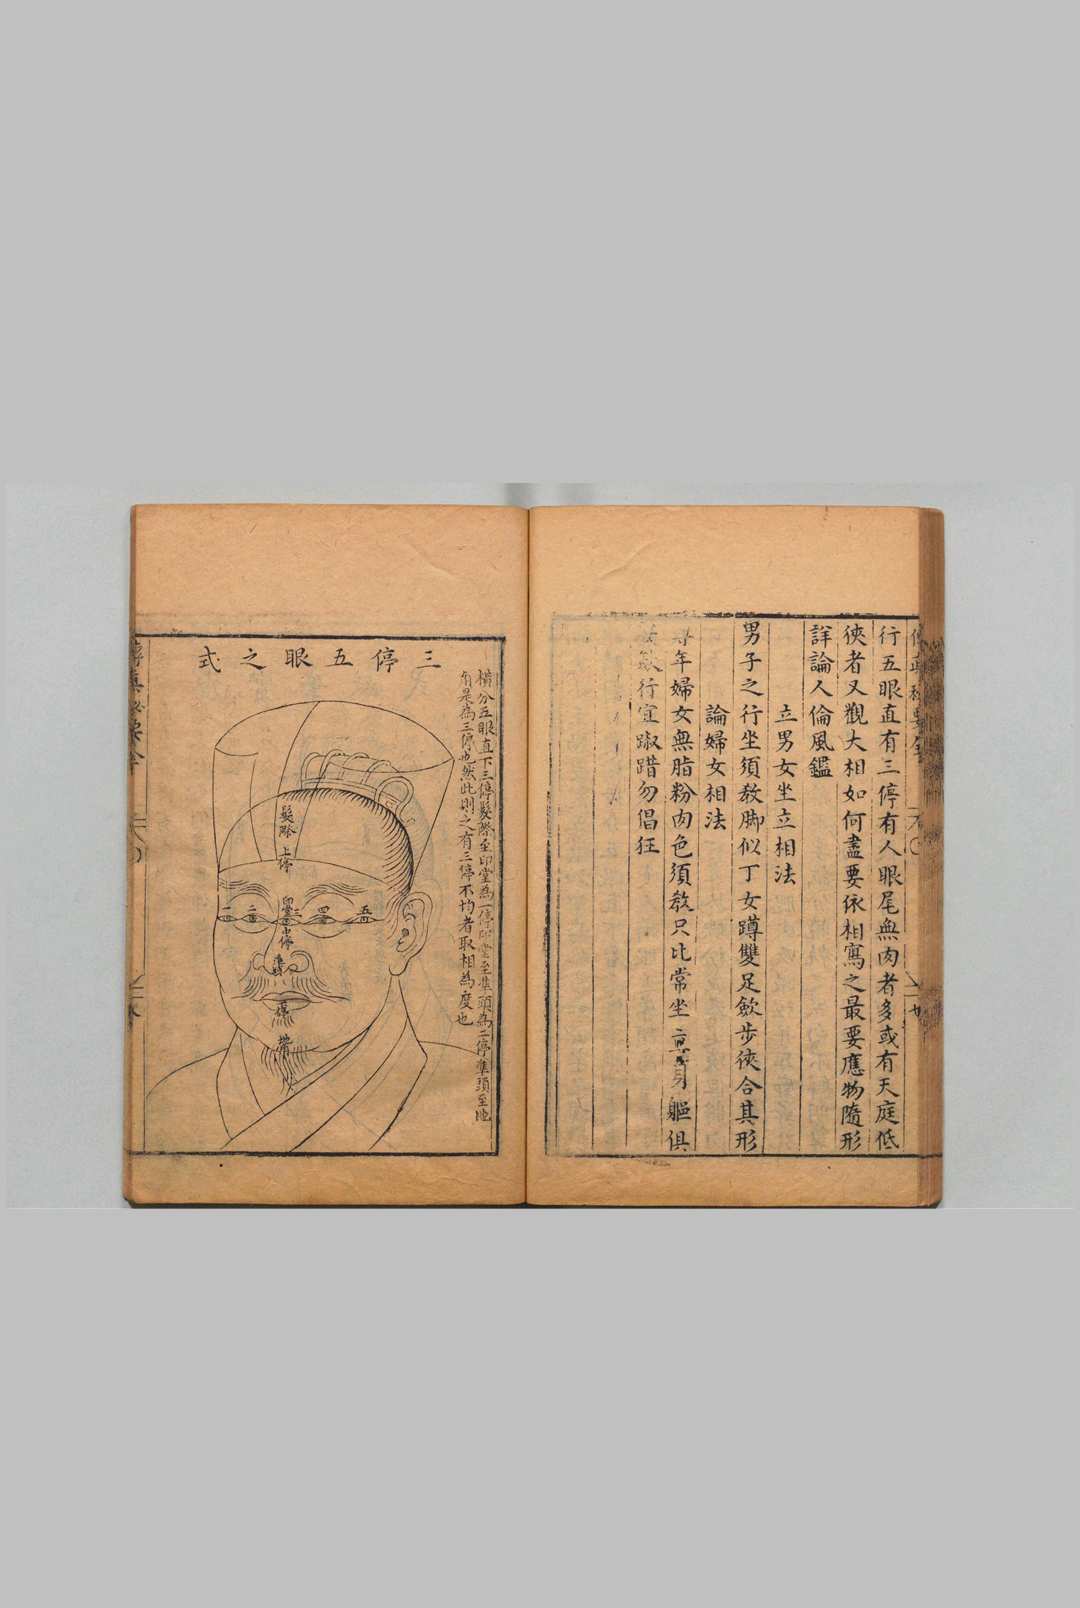 行五眼直有三停有人眼尾無肉者多或有天庭低
俠者又觀大相如何盡要依相寫之最要應物隨形
詳論人倫風鑑
立男女坐立相法
男子之行坐須教脚似丁女蹲雙足斂步俠合其形
論婦女相法
年婦女無脂粉肉色須教只比常坐 軀俱
行宜踧踖勿倡狂
三停五眼之式
橫分五眼直下三停髮際至印堂為一停印堂至準頭為二停準頭至地
角是為三停也然此則之有三停不均者取相為度也
髮際
上停
印堂
中停
一
二
三
四
五
準頭